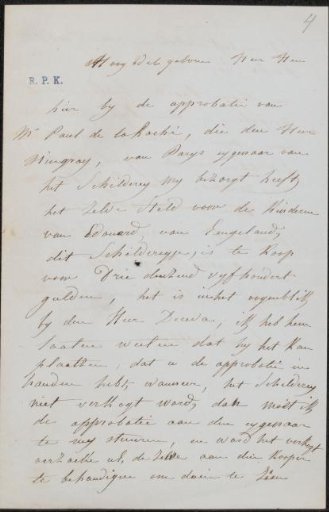 4
Hoog Edel geboren Heer Heer
R.P.K.
hier by de approbatie van
Mr Paul de laRoche, die den Heer
van Parys eygenaar van
het Schilderey my bezorgt heeft,
het zelve Steld voor de Kinderen
van Edouard, van Engeland;
dit Schildereyje, is te koop
voor Drie duizend vyfhondert
gulden, het is in het oogenblik
by den Heer ik heb hem
laaten weeten dat hy het kan
plaatsen, dat u de approbatie in
handen hebt, wanneer, het Schilderey
niet verkogt word, dan moet ik
de approbatie aan den eygenaar
te rug stuuren, en word het verkogt
verzoeke u, de zelve aan den kooper
te behandigen om daar in te zien